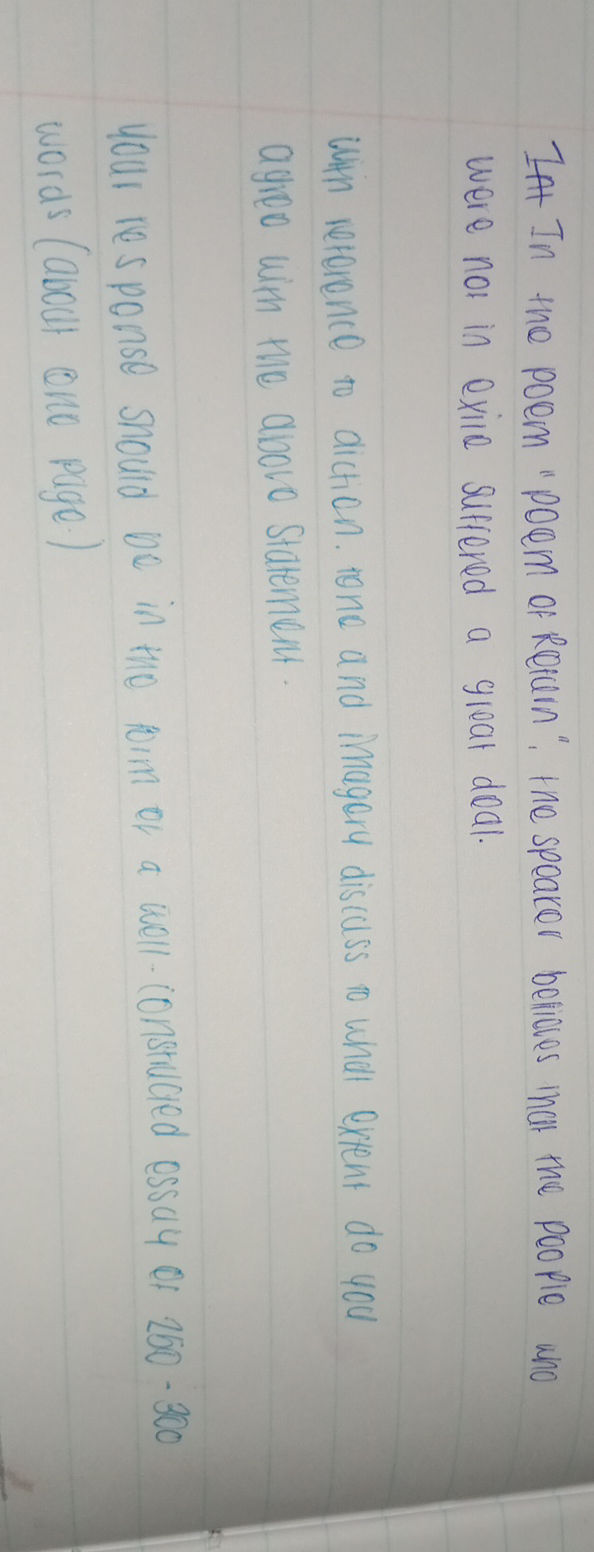 In the poem "poem of Return", the speaker believes that the people who
were not in exile suffered a great deal.
with reference to diction, tone and imagery discuss to what extent do you
agree with the above statement.
Your response should be in the form of a well-constructed essay of 250-300
words (about one page.)